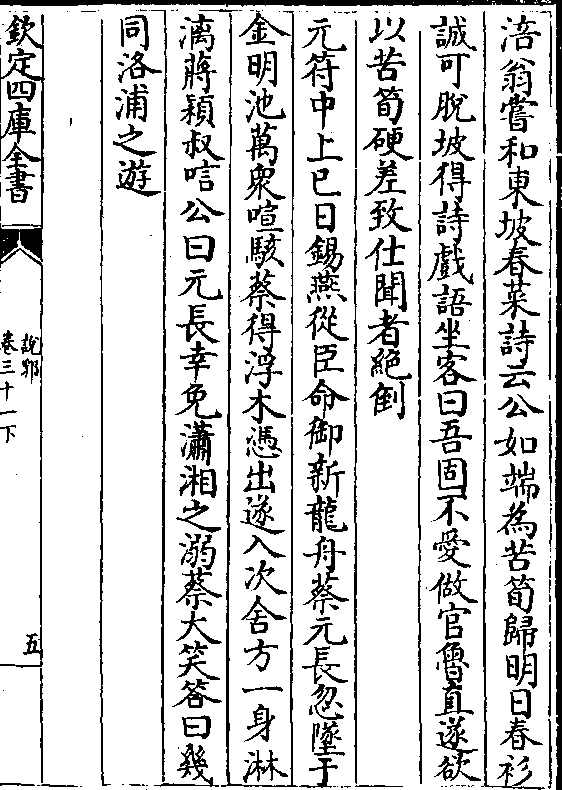 涪翁嘗和東坡春菜詩云公如端為苦筍歸明日春衫
誠可脫坡得詩戲語坐客曰吾固不愛做官魯直遂欲
以苦筍硬差致仕聞者絶倒
元符中上巳日錫燕從臣命御新龍舟蔡元長忽墜于
金明池萬衆喧駭蔡得浮木憑出遂入次舍方一身淋
漓蔣頴叔唁公曰元長幸免瀟湘之溺蔡大笑答曰幾
同洛浦之遊
欽定四庫全書
說郛
卷三十一下
五